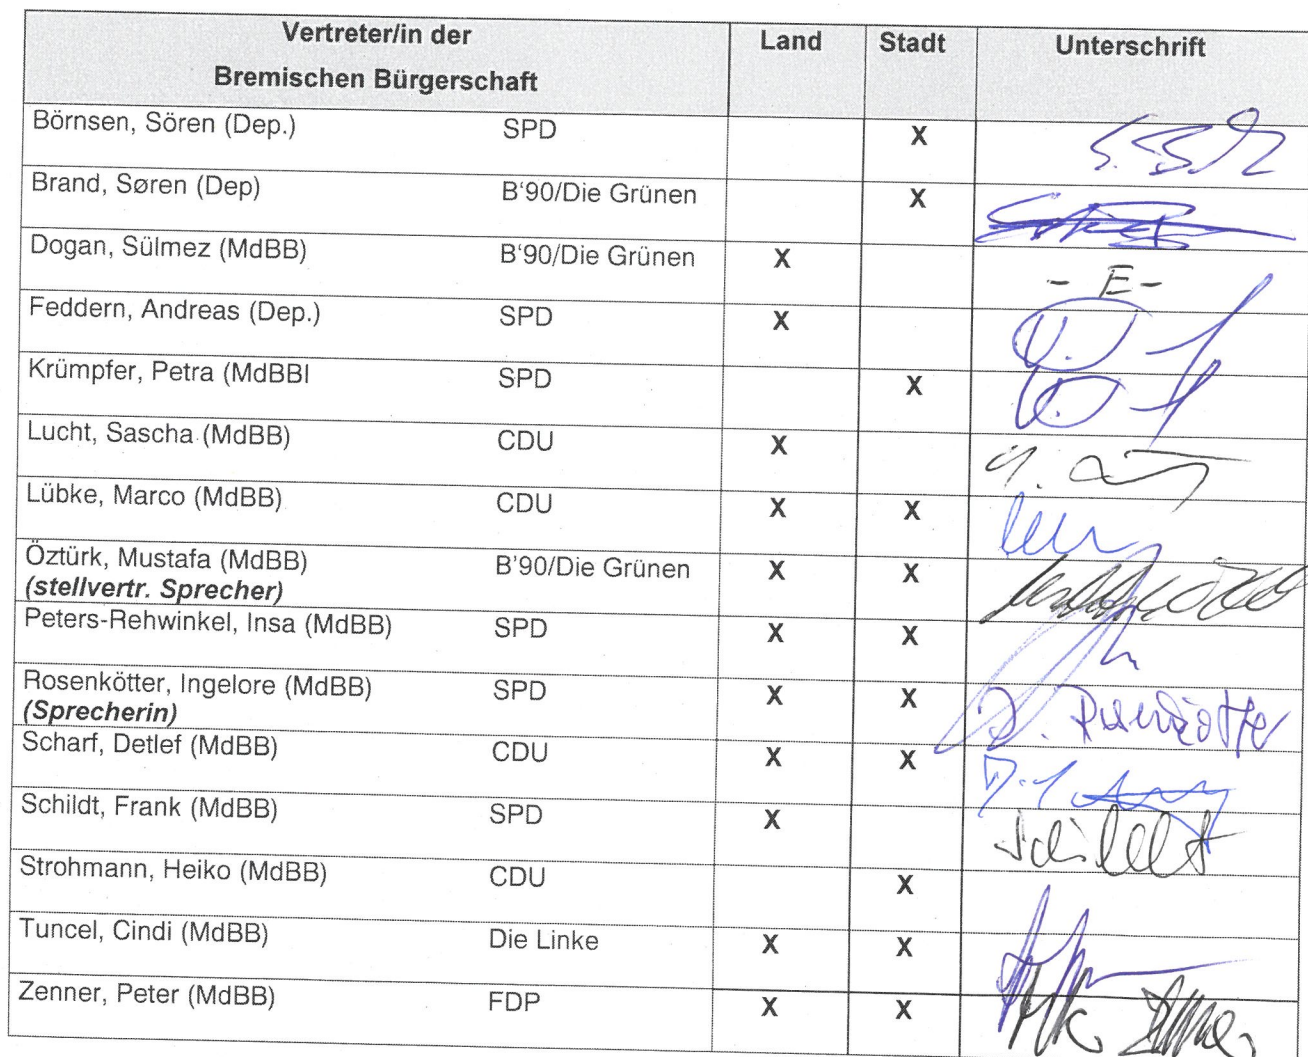 Vertreter/in der Land Stadt Unterschrift
Bremischen Bürgerschaft
Börnsen, Sören (Dep.) SPD X
Brand, Søren (Dep) B'90/Die Grünen X
Dogan, Sülmez (MdBB) B'90/Die Grünen X - E -
Feddern, Andreas (Dep.) SPD X
Krümpfer, Petra (MdBBI SPD X
Lucht, Sascha (MdBB) CDU X
Lübke, Marco (MdBB) CDU X X
Öztürk, Mustafa (MdBB) B'90/Die Grünen X X
(stellvertr. Sprecher)
Peters-Rehwinkel, Insa (MdBB) SPD X X
Rosenkötter, Ingelore (MdBB) SPD X X
(Sprecherin)
Scharf, Detlef (MdBB) CDU X X
Schildt, Frank (MdBB) SPD X Schildt
Strohmann, Heiko (MdBB) CDU X
Tuncel, Cindi (MdBB) Die Linke X X
Zenner, Peter (MdBB) FDP X X